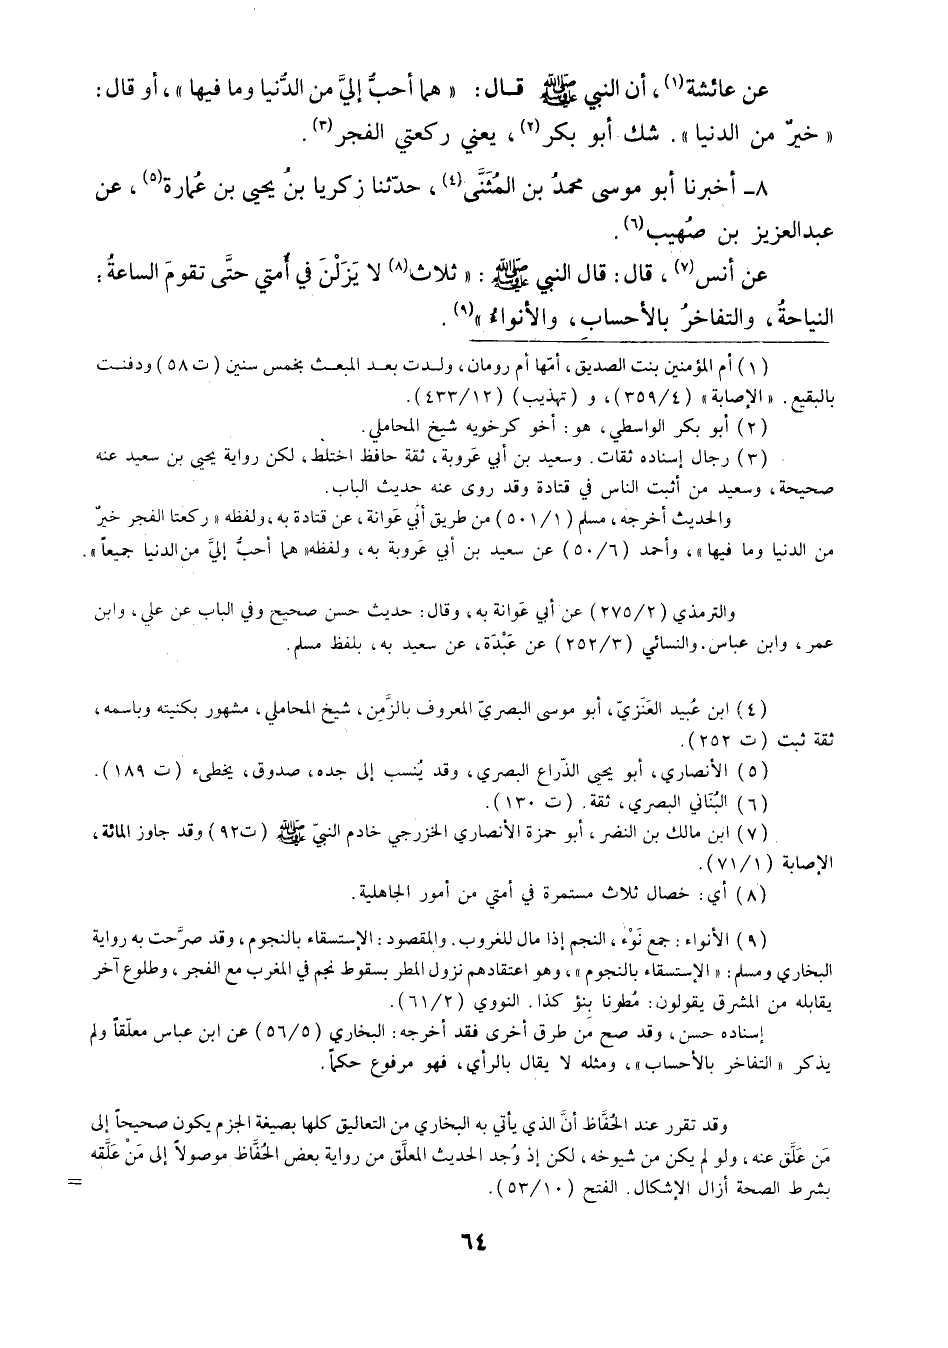 عن عائشة(١)، أن النبي ﷺ قـال: « هما أحبُّ إليَّ من الدُّنيا وما فيها »، أو قال:
« خيرٌ من الدنيا ». شك أبو بكر(٢)، يعني ركعتي الفجر(٣).
٨ـ أخبرنا أبو موسى محمدُ بن المُثَنَّى(٤)، حدّثنا زكريا بنُ يحيى بن عُمارة(٥)، عن
عبدالعزيز بن صُهيب(٦).
عن أنس(٧)، قال: قال النبي ﷺ: « ثلاث(٨) لا يَزَلْنَ في أُمتي حتَّى تقومَ الساعةُ:
النياحةُ، والتفاخرُ بالأحسابِ، والأنواءُ »(٩).
(١) أم المؤمنين بنت الصديق، أمّها أم رومان، ولـدت بعـد المبعـث بخمس سنين (ت ٥٨) ودفنـت
بالبقيع. « الإصابة » (٣٥٩/٤)، و (تهذيب) (٤٣٣/١٢).
(٢) أبو بكر الواسطي، هو: أخو كرخويه شيخ المحاملي.
(٣) رجال إسناده ثقات. وسعيد بن أبي عَروبة، ثقة حافظ اختلط، لكن رواية يحيى بن سعيد عنه
صحيحة، وسعيد من أثبت الناس في قتادة وقد روى عنه حديث الباب.
والحديث أخرجه، مسلم (٥٠١/١) من طريق أبي عَوانة، عن قتادة به، ولفظه « ركعتا الفجر خيرٌ
من الدنيا وما فيها »، وأحمد (٥٠/٦) عن سعيد بن أبي عَروبة به، ولفظه« هما أحبُّ إليَّ من الدنيا جميعاً ».
والترمذي (٢٧٥/٢) عن أبي عَوانة به، وقال: حديث حسن صحيح وفي الباب عن علي، وابن
عمر، وابن عباس. والنسائي (٢٥٢/٣) عن عَبْدَة، عن سعيد به، بلفظ مسلم.
(٤) ابن عُبيد العَنَزيّ، أبو موسى البصريّ المعروف بالزَّمِن، شيخ المحاملي، مشهور بكنيته وباسمه،
ثقة ثبت (ت ٢٥٢).
(٥) الأنصاري، أبو يحيى الذّراع البصري، وقد يُنسب إلى جده، صدوق، يخطىء (ت ١٨٩).
(٦) البُنَاني البصري، ثقة. (ت ١٣٠).
(٧) ابن مالك بن النضر، أبو حمزة الأنصاري الخزرجي خادم النبيّ ﷺ (ت٩٢) وقد جاوز المائة،
الإصابة (٧١/١).
(٨) أي: خصال ثلاث مستمرة في أمتي من أمور الجاهلية.
(٩) الأنواء: جمع نَوْء، النجم إذا مال للغروب. والمقصود: الإستسقاء بالنجوم، وقد صرَّحت به رواية
البخاري ومسلم: « الإستسقاء بالنجوم »، وهو اعتقادهم نزول المطر بسقوط نجم في المغرب مع الفجر، وطلوع آخر
يقابله من المشرق يقولون: مُطرنا بِنؤ كذا. النووي (٦١/٢).
إسناده حسن، وقد صح من طرق أخرى فقد أخرجه: البخاري (٥٦/٥) عن ابن عباس معلّقاً ولم
يذكر « التفاخر بالأحساب »، ومثله لا يقال بالرأي، فهو مرفوع حكماً.
وقد تقرر عند الحُفَّاظ أنَّ الذي يأتي به البخاري من التعاليق كلها بصيغة الجزم يكون صحيحاً إلى
مَن عَلَّق عنه، ولو لم يكن من شيوخه، لكن إذ وُجد الحديث المعلَّق من رواية بعض الحُفَّاظ موصولاً إلى مَنْ عَلَّقه
بشرط الصحة أزال الإشكال. الفتح (٥٣/١٠).
=
٦٤